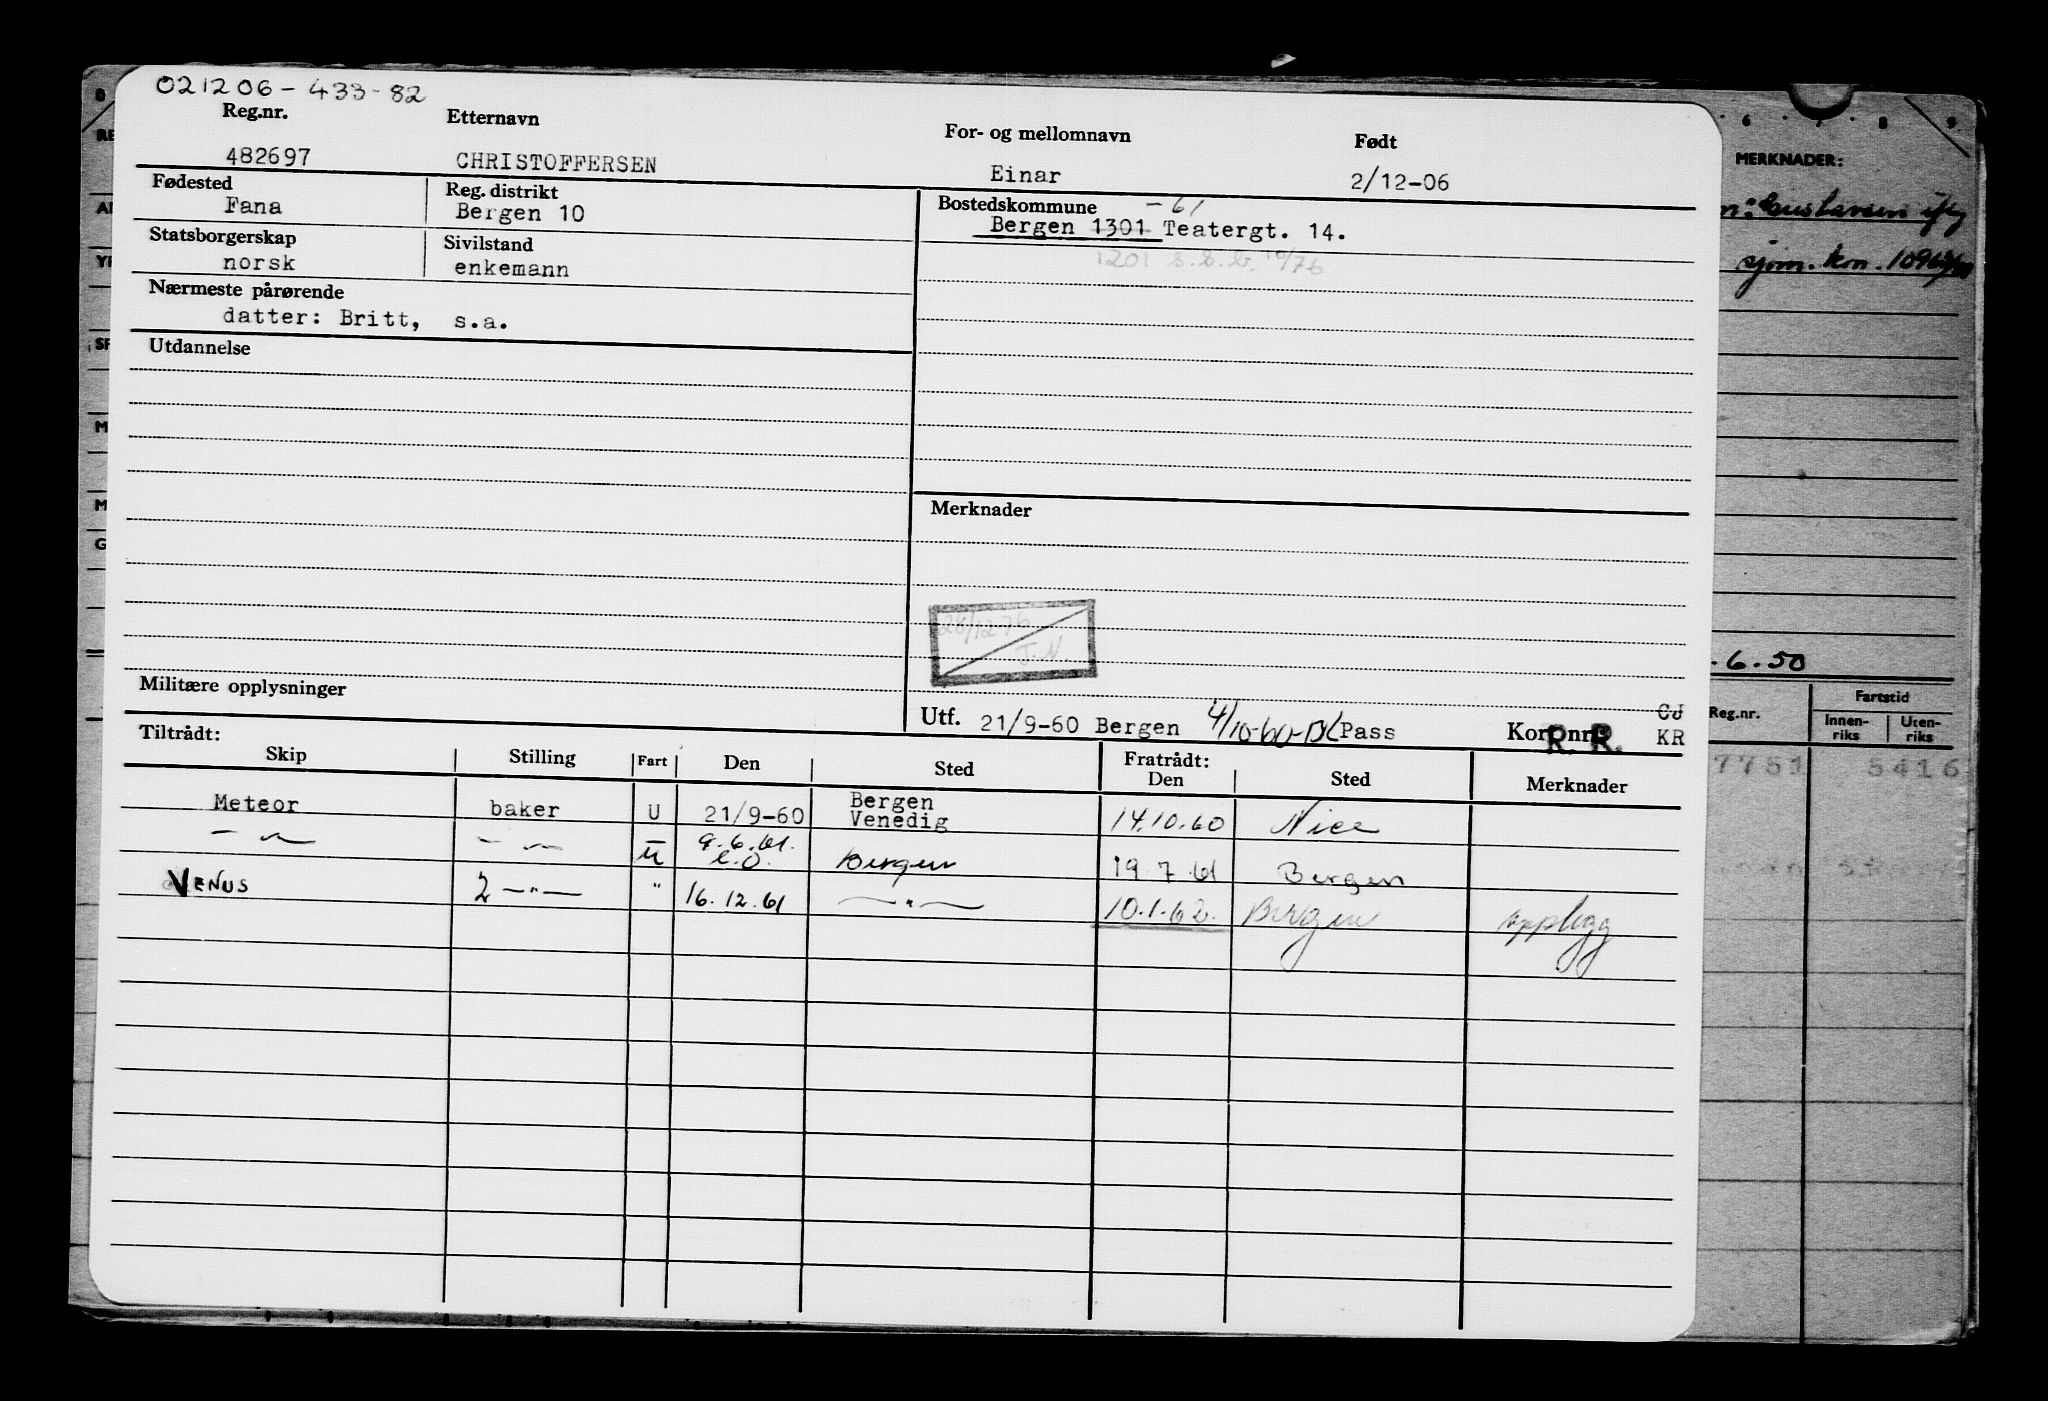 021206-433-82
Reg.nr. Etternavn For- og mellomnavn Født
482697 CHRISTOFFERSEN Einar 2/12-06
Fødested Reg. distrikt Bostedskommune -61
Fana Bergen 10 Bergen 1301 Teatergt. 14.
Statsborgerskap Sivilstand
norsk enkemann 1201 s.s.b. 10/76
Nærmeste pårørende
datter: Britt, s.a.
Utdannelse
Merknader
28/12 76
J.N.
Militære opplysninger
Utf. 21/9-60 Bergen 4/10-60- Pass Kor nr. R. R. CJ
KR
Tiltrådt: Fratrådt:
Skip Stilling Fart Den Sted Den Sted Merknader
Meteor baker U 21/9-60 Bergen Venedig 14.10.60 Nice
— " — — " — U 9.6.61. Bergen 19.7.61 Bergen
VENUS 2 —"— " 16.12.61 —"— 10.1.62. Bergen opplegg
6 7 8 9
MERKNADER:
sjøm. kon.
.6.50
Reg.nr. Fartstid
Innen-riks Uten-riks
7751 5416